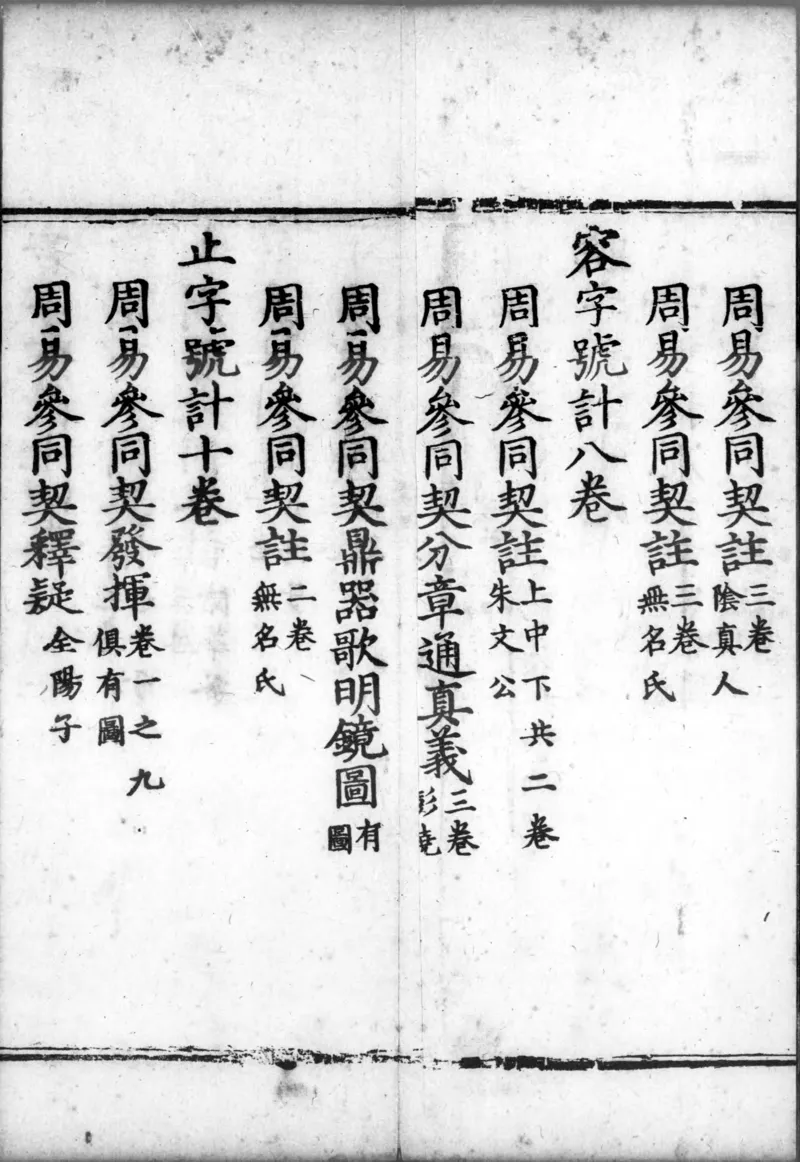 周易參同契註三卷陰真人
周易參同契註三卷無名氏
容字號計八卷
周易參同契註上中下共二卷朱文公
周易參同契分章通真義三卷彭曉
周易參同契鼎器歌明鏡圖有圖
周易參同契註二卷無名氏
止字號計十卷
周易參同契發揮卷一之九俱有圖
周易參同契釋疑全陽子